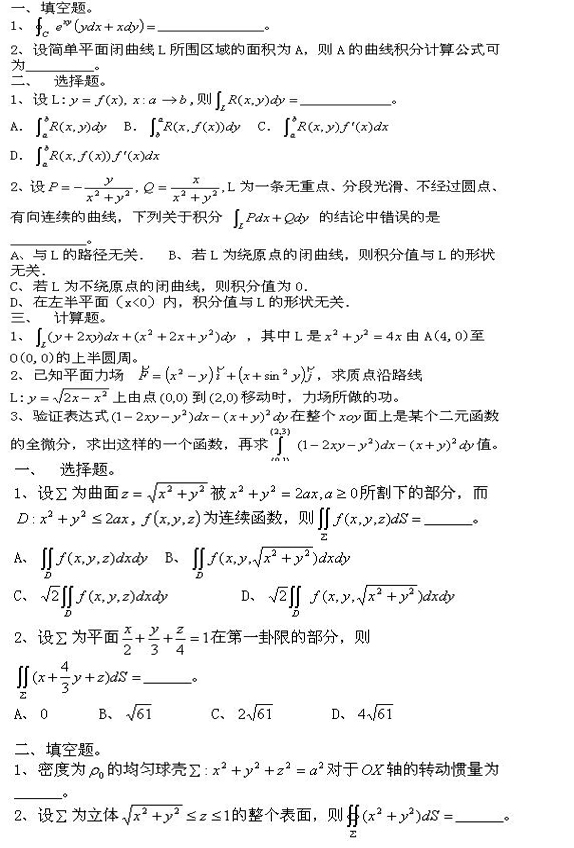 一、填空题。
1、∮_C e^{xy}(ydx+xdy)=____________。
2、设简单平面闭曲线 L 所围区域的面积为 A，则 A 的曲线积分计算公式可
为________。
二、 选择题。
1、设 L: y = f(x), x: a → b ,则∫_L R(x,y)dy =____________。
A. ∫_a^b R(x,y)dy B. ∫_b^a R(x,f(x))dy C. ∫_a^b R(x,y)f'(x)dx
D. ∫_a^b R(x,f(x))f'(x)dx
2、设 P = -y/(x²+y²), Q = x/(x²+y²), L 为一条无重点、分段光滑、不经过圆点、
有向连续的曲线，下列关于积分 ∫_L Pdx+Qdy 的结论中错误的是
________。
A、与 L 的路径无关. B、若 L 为绕原点的闭曲线，则积分值与 L 的形状
无关.
C、若 L 为不绕原点的闭曲线，则积分值为 0.
D、在左半平面（x<0）内，积分值与 L 的形状无关.
三、 计算题。
1、∫_L (y+2xy)dx+(x²+2x+y²)dy ，其中 L 是 x²+y²=4x 由 A(4,0)至
O(0,0)的上半圆周。
2、已知平面力场 F=(x²-y)i+(x+sin²y)j，求质点沿路线
L: y=√(2x-x²) 上由点(0,0)到(2,0)移动时，力场所做的功。
3、验证表达式(1-2xy-y²)dx-(x+y)²dy在整个xoy面上是某个二元函数
的全微分，求出这样的一个函数，再求∫_{(0,1)}^{(2,3)} (1-2xy-y²)dx-(x+y)²dy值。
一、 选择题。
1、设∑为曲面z=√(x²+y²)被x²+y²=2ax,a≥0所割下的部分，而
D: x²+y²≤2ax, f(x,y,z)为连续函数，则∬_Σ f(x,y,z)dS=______。
A、∬_D f(x,y,z)dxdy B、∬_D f(x,y,√(x²+y²))dxdy
C、√2∬_D f(x,y,z)dxdy D、√2∬_D f(x,y,√(x²+y²))dxdy
2、设∑为平面x/2+y/3+z/4=1在第一卦限的部分，则
∬_Σ (x+4/3y+z)dS=______。
A、0 B、√61 C、2√61 D、4√61
二、填空题。
1、密度为ρ₀的均匀球壳∑: x²+y²+z²=a²对于OX轴的转动惯量为
______。
2、设∑为立体√(x²+y²)≤z≤1的整个表面，则∯_Σ (x²+y²)dS=______。